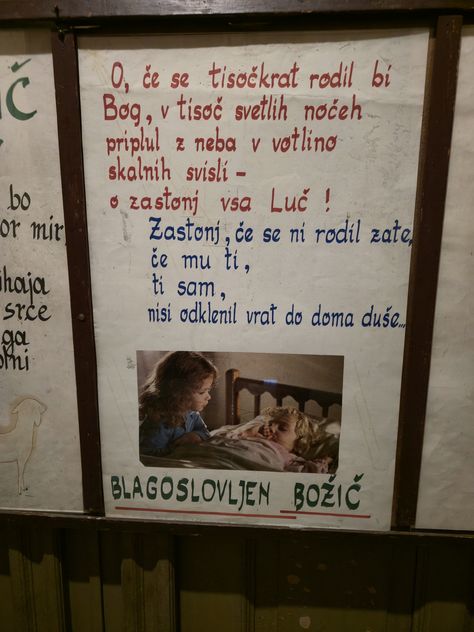 O, če se tisočkrat rodil bi
Bog, v tisoč svetlih nočeh
priplul z neba v votlino
skalnih svisli –
o zastonj vsa Luč !
Zastonj, če se ni rodil zate,
če mu ti,
ti sam,
nisi odklenil vrat do doma duše...
BLAGOSLOVLJEN BOŽIČ
Č
bo
or mir,
ihaja
srce
ga